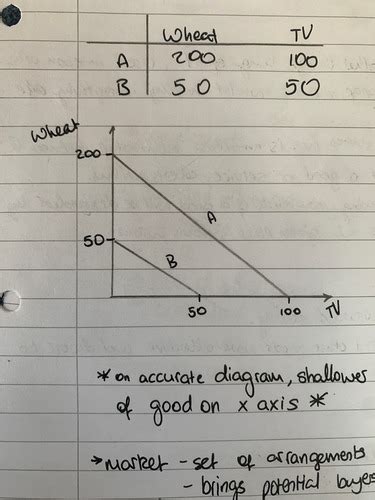 Wheat TV
A 200 100
B 50 50
Wheat
200
A
50
B
50 100 TV
* on accurate diagram, shallower
of good on x axis *
→ market - set of arrangements
- brings potential buyers